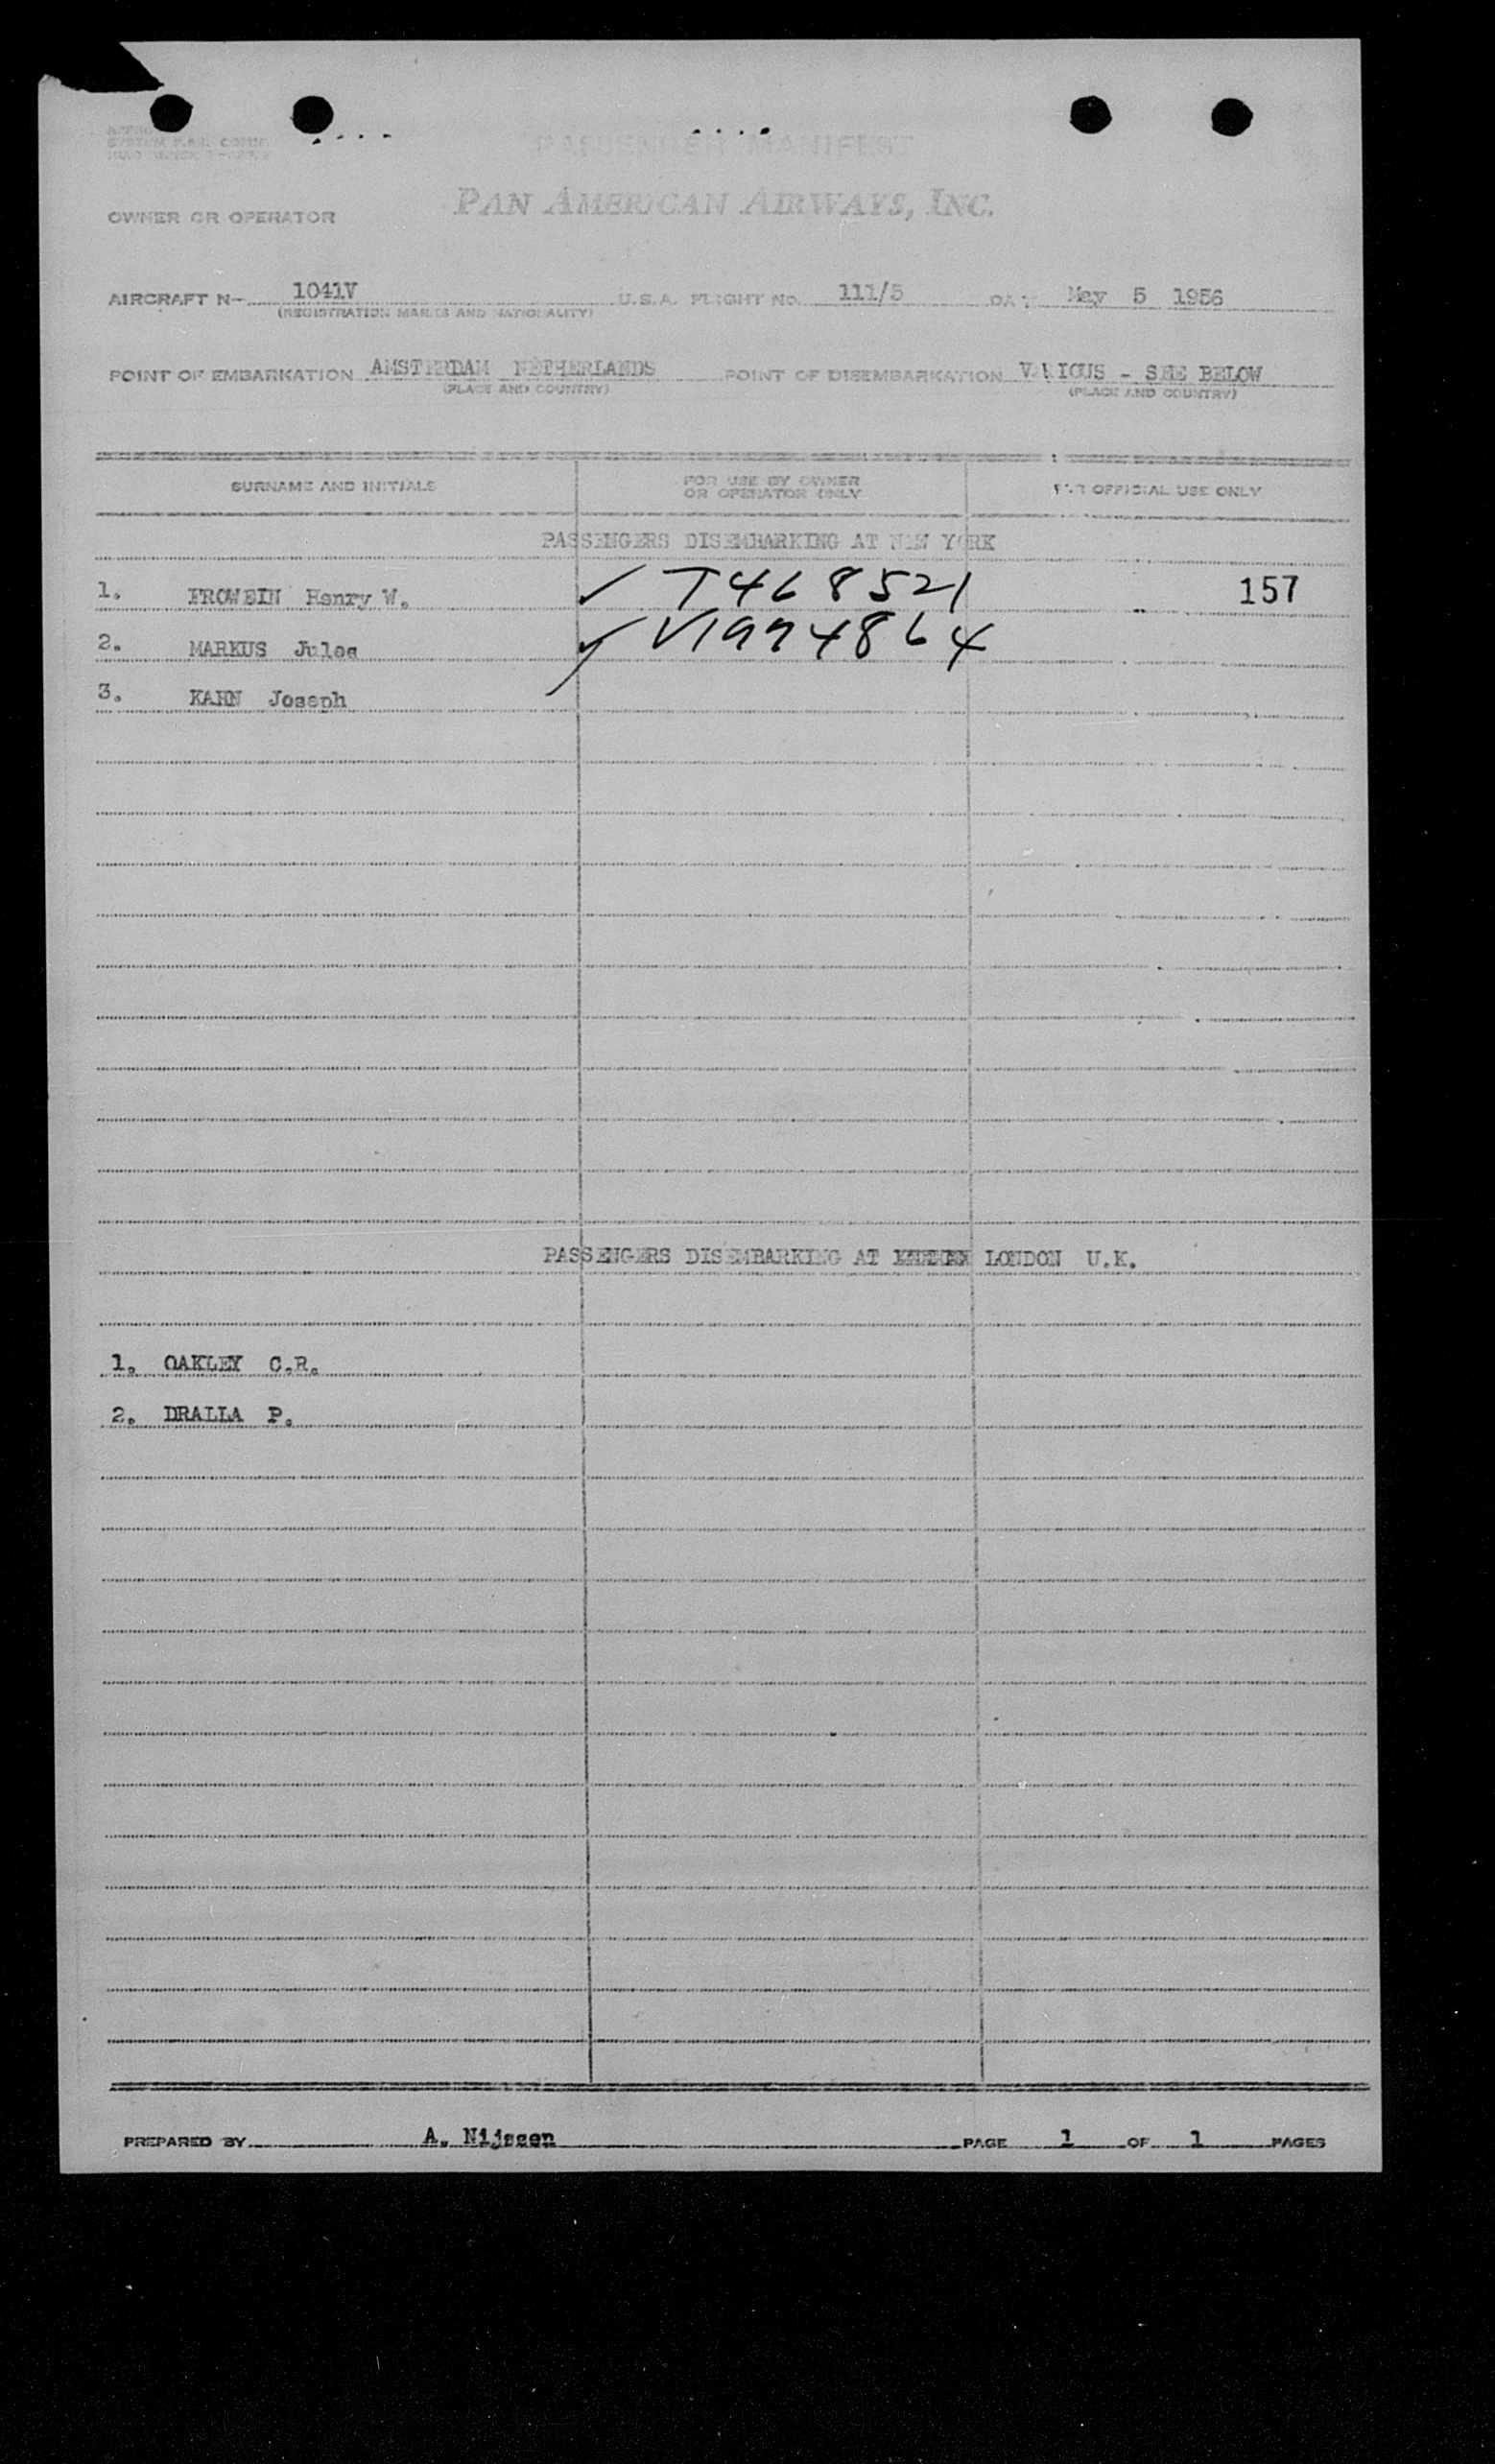 PASSENGER MANIFEST
OWNER OR OPERATOR PAN AMERICAN AIRWAYS, INC.
AIRCRAFT N- 1041V U.S.A. FLIGHT NO. 111/5 DATE May 5 1956
(REGISTRATION MARKS AND NATIONALITY)
POINT OF EMBARKATION AMSTERDAM NETHERLANDS POINT OF DISEMBARKATION VARIOUS - SEE BELOW
(PLACE AND COUNTRY) (PLACE AND COUNTRY)
SURNAME AND INITIALS FOR USE BY OWNER OR OPERATOR ONLY FOR OFFICIAL USE ONLY
PASSENGERS DISEMBARKING AT NEW YORK
1. FROWEIN Henry W. ✓ T468521 157
2. MARKUS Jules ✓ V1994864
3. KAHN Joseph
PASSENGERS DISEMBARKING AT LONDON U.K.
1. OAKLEY C.R.
2. DRALLA P.
PREPARED BY A. Nijssen PAGE 1 OF 1 PAGES